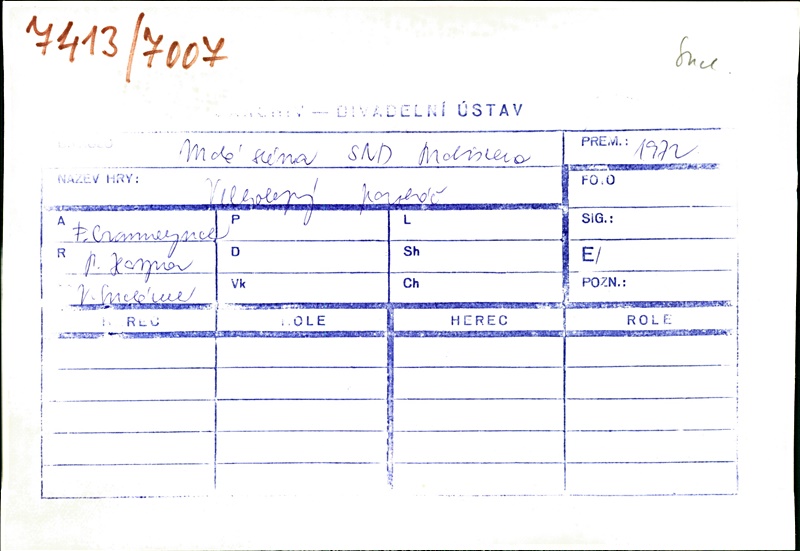 7413/7007
— DIVADELNÍ ÚSTAV
Malá scéna SND Bratislava
PREM.: 1972
NÁZEV HRY: Velkolepý paroháč
FOTO
A F. Crommelynck
P
L
SIG.:
R P. Haspra
D
Sh
E/
Vk
Ch
POZN.:
HEREC ROLE HEREC ROLE